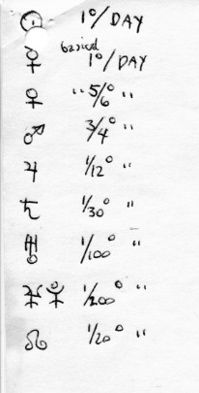 ☉ 1°/DAY
basical
☿ 1°/DAY
♀ " 5/6° "
♂ 3/4° "
♃ 1/12° "
♄ 1/30° "
♅ 1/100° "
♆ ♇ 1/200° "
☊ 1/20° "